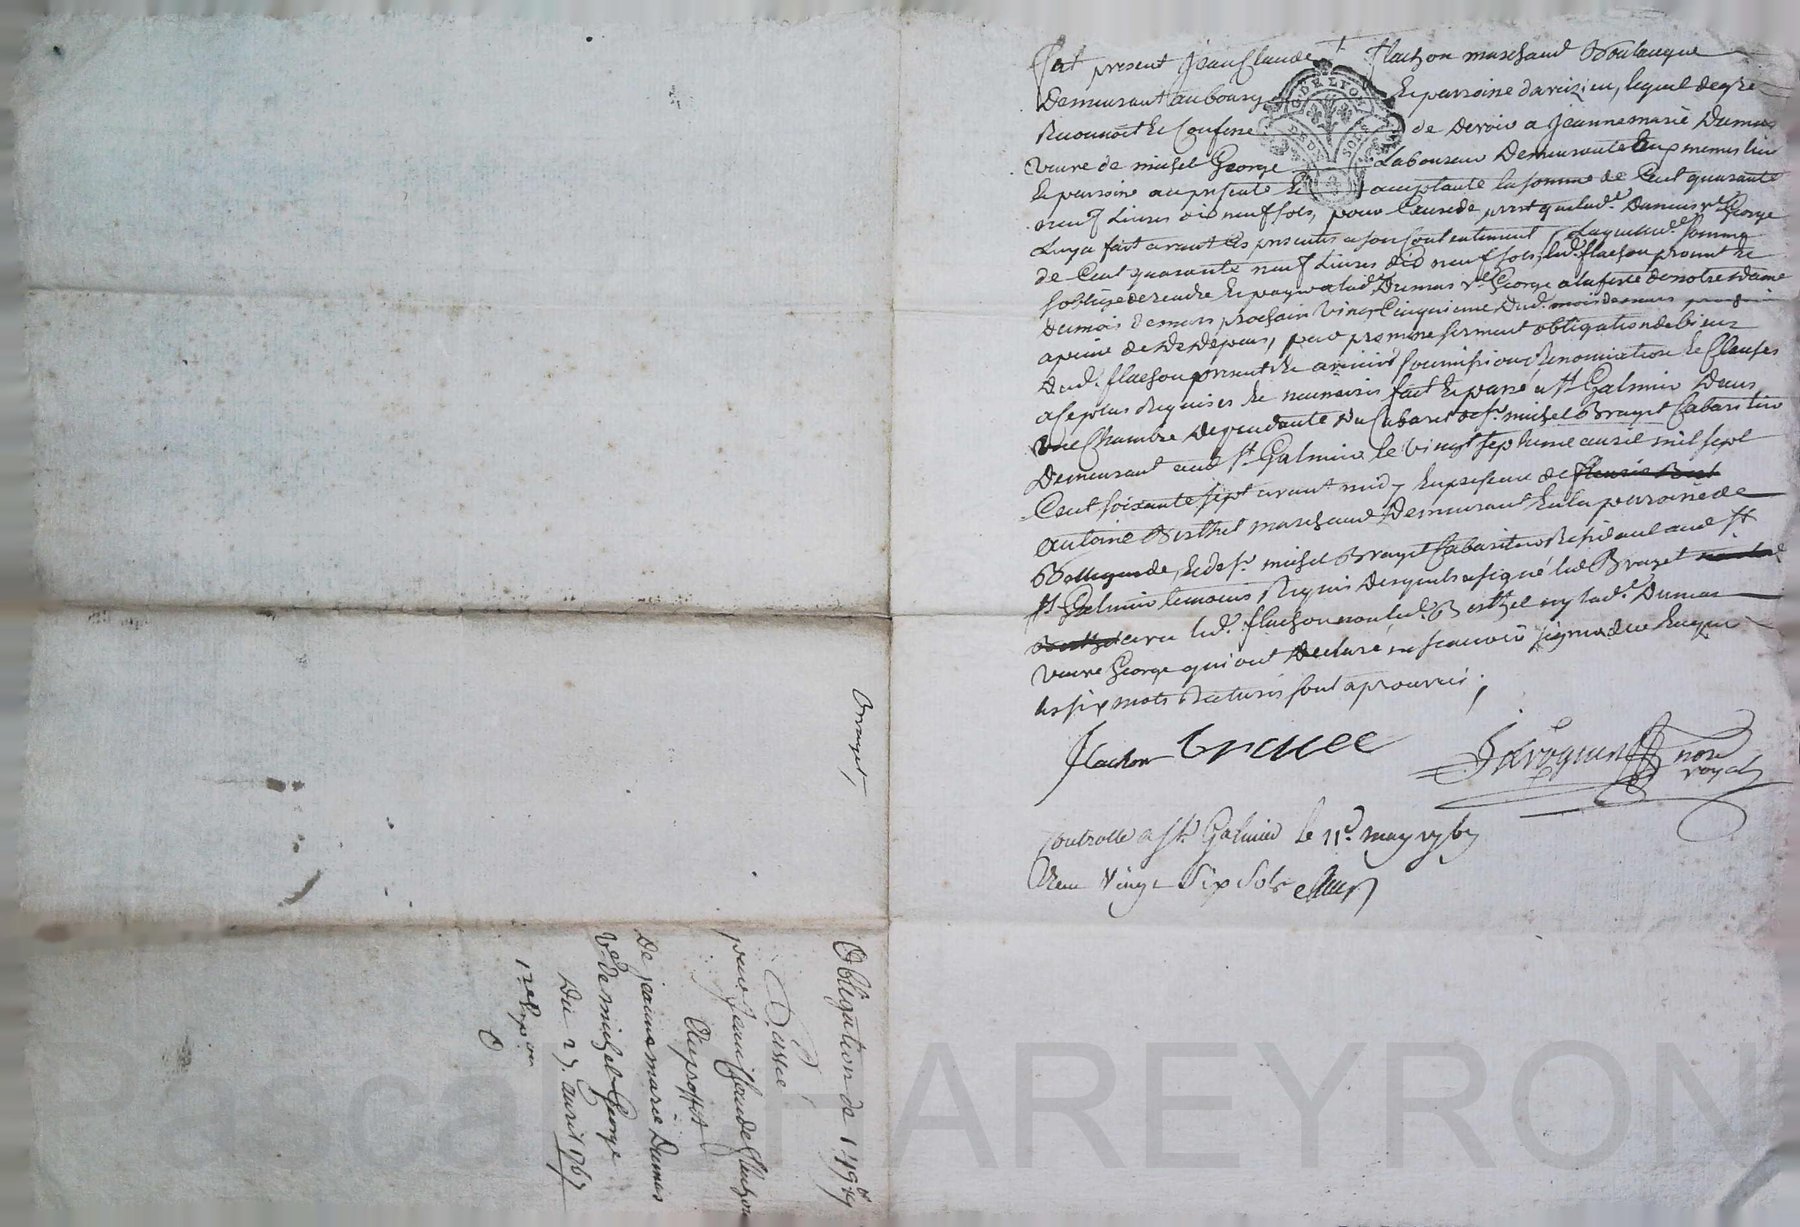 fut present Jean Claude flachon marchand Boulangé
Demeurant au bourg Et parroisse daveizieu, lequel degré
Reconnoit Et Confesse de devoir a Jeanne marie Dumas
veuve de michel George Laboureur Demeurante aux memes lieu
Et parroisse au presente Et acceptante la somme de Cent quarante
neuf Livres dix neuf sols, pour Cause de prest que lad.e Dumas v.e George
Luy a fait avant Ces presentes a son Contentement, Laquelle d.e somme
de Cent quarante neuf Livres dix neuf sols, led. flachon promet Et
soblige de rendre Et payer a lad.e Dumas v.e George a la feste de notre dame
du mois de mars prochain vingt Cinquieme dud. mois de mars
a peine de Dépens, par promesse serment obligation de biens
dud. flachon present Et avenir soumissions Renonciation Et Clauses
a Ce plus Requises Et necessaires fait Et passé a St Galmier Dans
une Chambre Dependante du Cabaret de sr michel Brayet Cabaretier
Demeurant aud St Galmier le vingt septieme avril mil sept
Cent soixante sept avant midy En presence de
antoine Berthet marchand Demeurant En la parroisse de
Bellegarde, Et de sr michel Brayet Cabaretier Residant aud St
St Galmier temoins Requis Desquels a signé led Brayet
avec led. flachon non led. Berthet ny lad.e Dumas
veuve George qui ont declaré ne scavoir signer de ce Enquis
les six mots Raturés sont aprouvés
flachon Brayet
not.e
royal
Controllé a St. Galmier le 11.e may 1767
Reçu vingt Six Sols
Brayet,
Obligation de 149# 19s
Passée
par Jean Claude flachon
Au proffit
De jeanne marie Dumas
v.e de michel George
Du 27. avril 1767
1re Exp.on